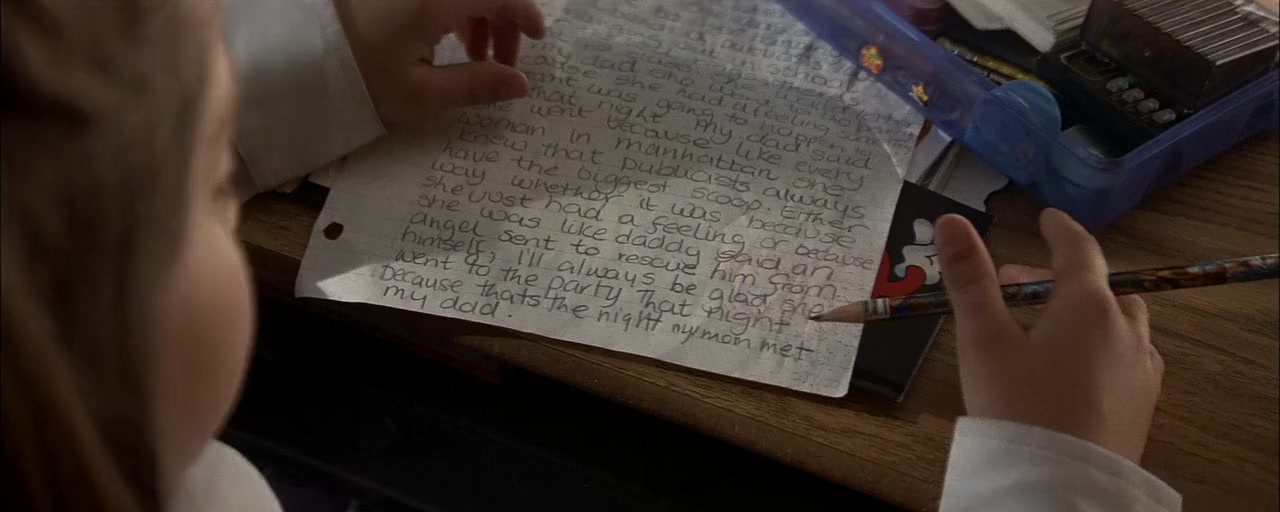 dad she
she had a feeling
was going to happen
that night My dad said
went because like every
woman in manhattan she
knew that Publicists always
have the biggest scoop. Either
way whether it was because
she Just had a feeling or because
she was like daddy said an
angel sent to rescue him from
himself, I'll always be glad she
went to the party That night
because thats the night my mom met
my dad.